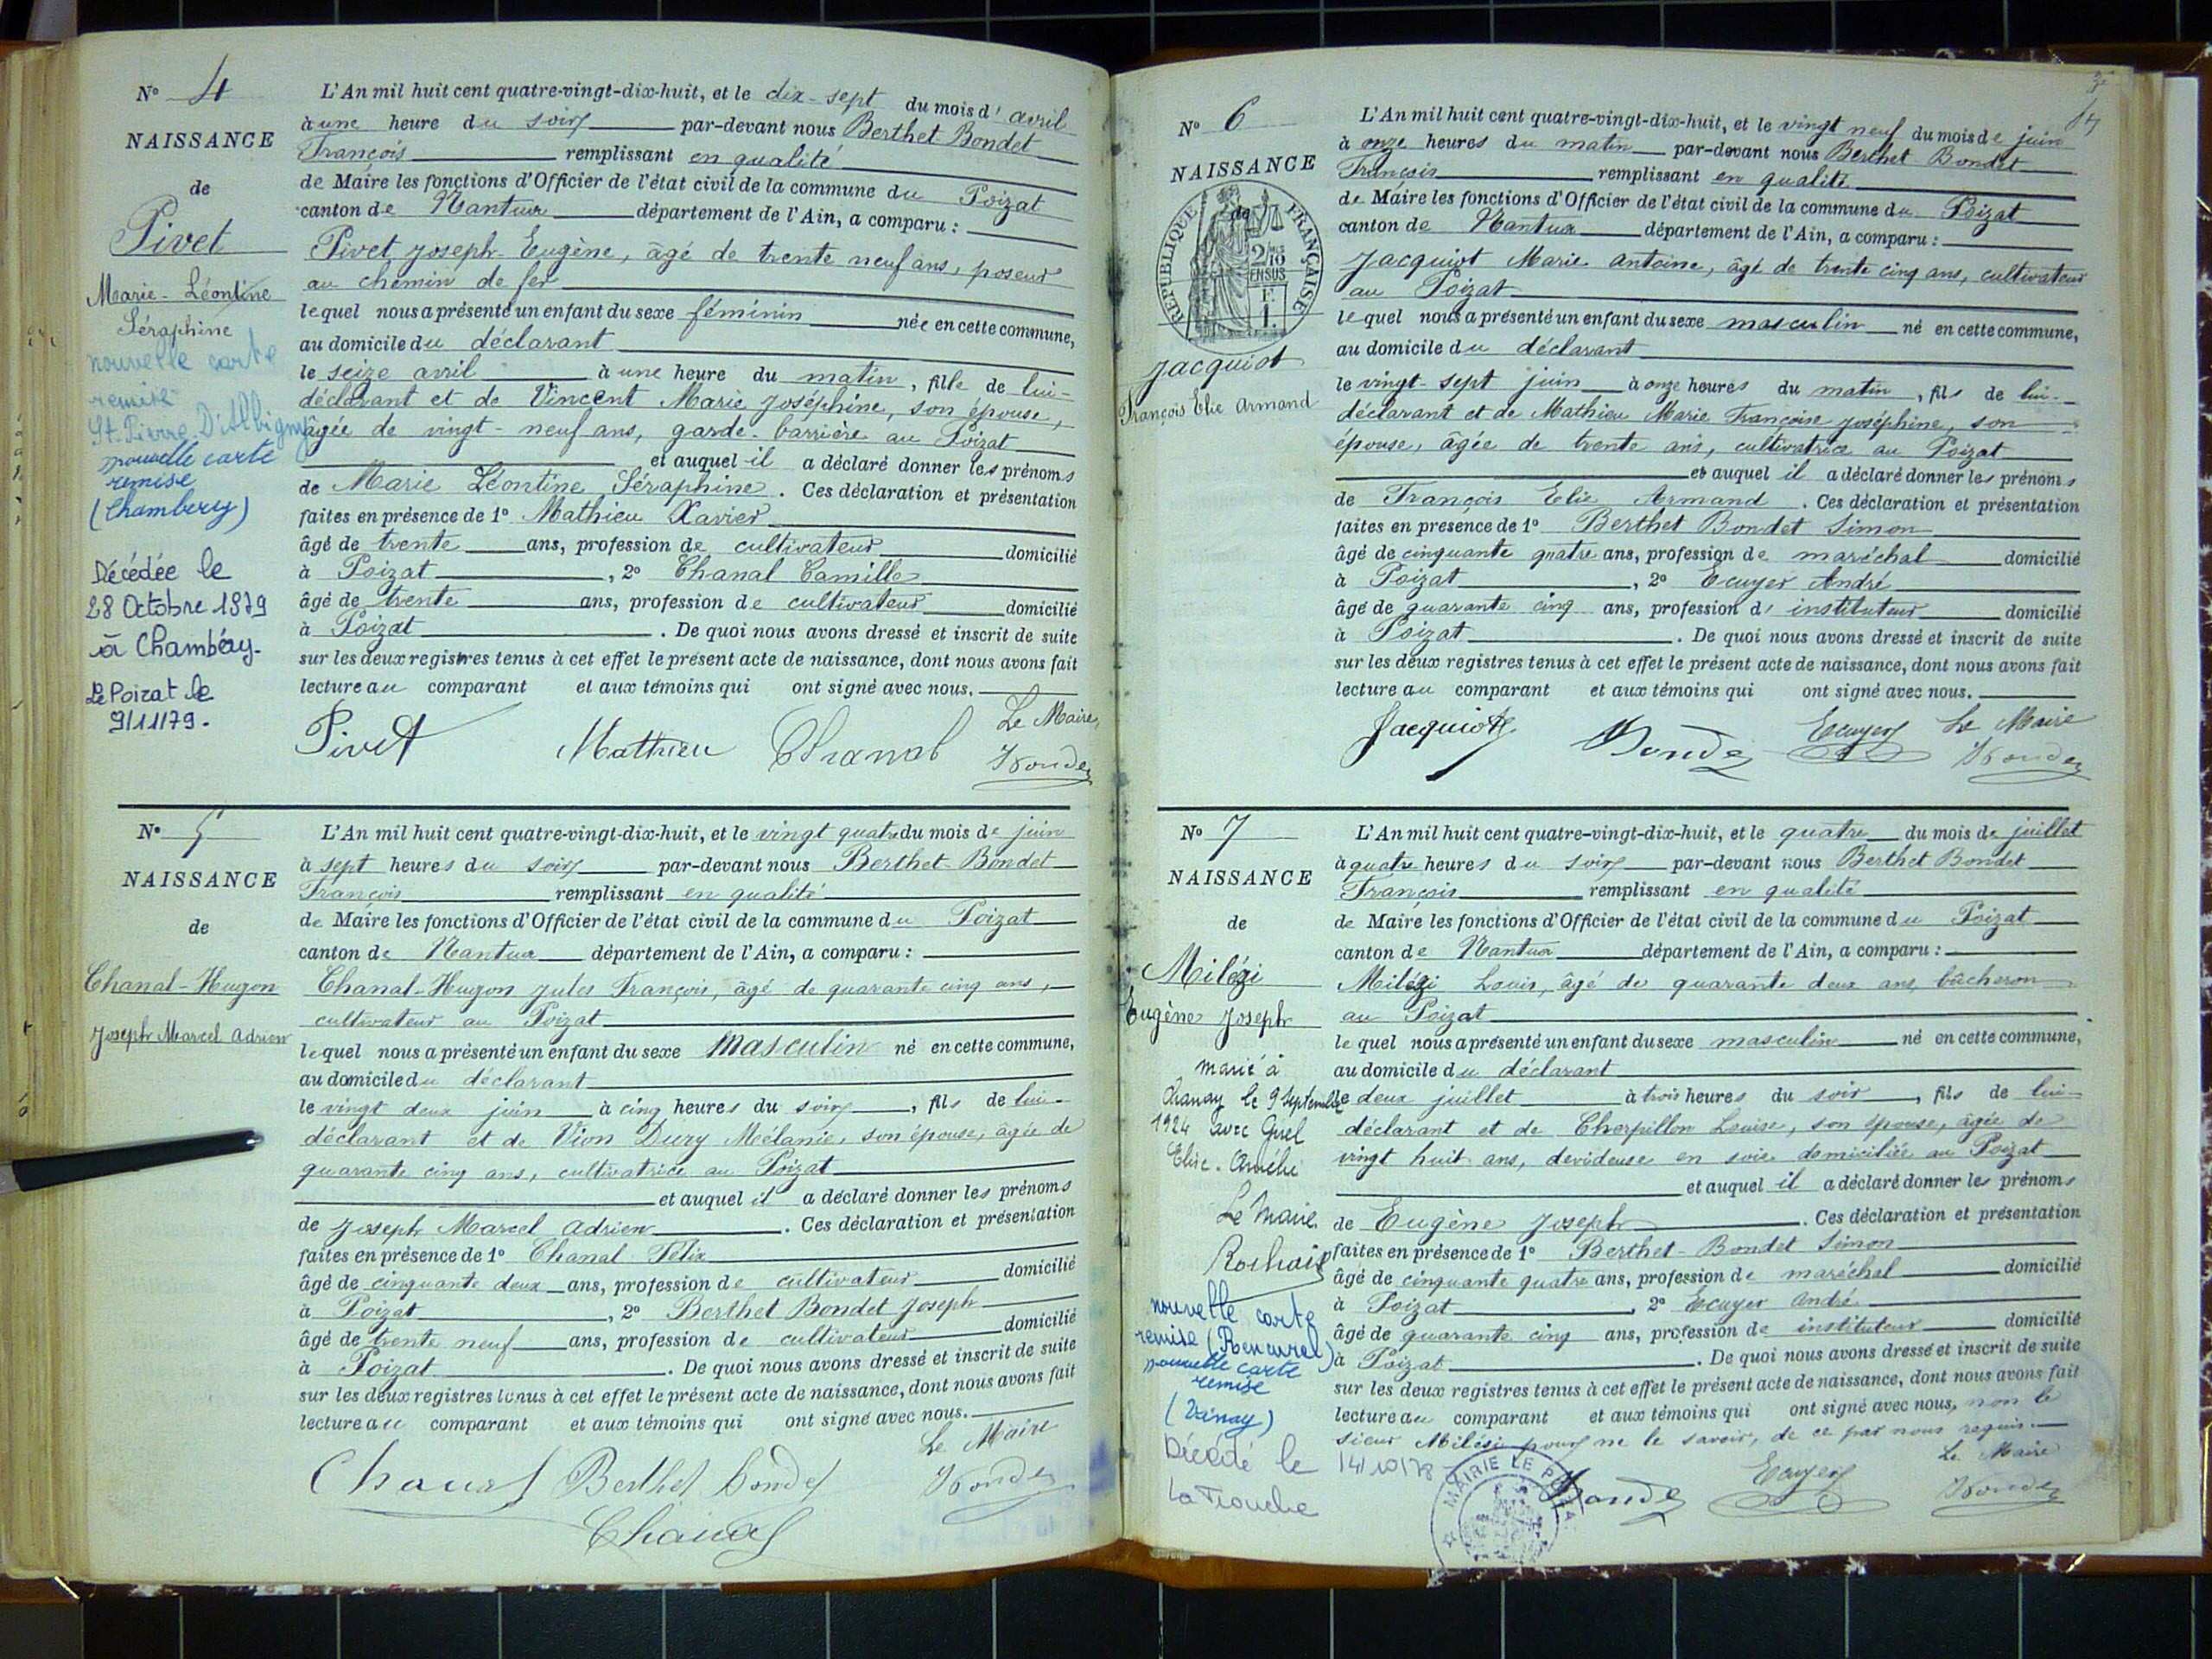 N° 4
NAISSANCE
de
Pivet
Marie-Léontine
Séraphine
nouvelle carte
remise
St-Pierre D'Albigny
nouvelle carte
remise
(Chambery)
Décédée le
28 Octobre 1979
à Chambéry.
Le Poizat le
9/11/79.
L'An mil huit cent quatre-vingt-dix-huit, et le dix-sept du mois d'avril
à une heure du soir par-devant nous Berthet Bondet
François remplissant en qualité
de Maire les fonctions d'Officier de l'état civil de la commune du Poizat
canton de Nantua département de l'Ain, a comparu :
Pivet Joseph-Eugène, âgé de trente neuf ans, poseur
au chemin de fer
lequel nous a présenté un enfant du sexe féminin née en cette commune,
au domicile du déclarant
le seize avril à une heure du matin, fille de lui-
déclarant et de Vincent Marie Joséphine, son épouse,
âgée de vingt-neuf ans, garde-barrière au Poizat
et auquel il a déclaré donner les prénoms
de Marie Léontine Séraphine. Ces déclaration et présentation
faites en présence de 1° Mathieu Xavier
âgé de trente ans, profession de cultivateur domicilié
à Poizat, 2° Chanal Camille
âgé de trente ans, profession de cultivateur domicilié
à Poizat. De quoi nous avons dressé et inscrit de suite
sur les deux registres tenus à cet effet le présent acte de naissance, dont nous avons fait
lecture au comparant et aux témoins qui ont signé avec nous.
Le Maire,
Pivet Mathieu Chanal Bondet
N° 5
NAISSANCE
de
Chanal-Hugon
Joseph Marcel Adrien
L'An mil huit cent quatre-vingt-dix-huit, et le vingt quatre du mois de juin
à sept heures du soir par-devant nous Berthet-Bondet
François remplissant en qualité
de Maire les fonctions d'Officier de l'état civil de la commune du Poizat
canton de Nantua département de l'Ain, a comparu :
Chanal-Hugon Jules François, âgé de quarante cinq ans,
cultivateur au Poizat
lequel nous a présenté un enfant du sexe masculin né en cette commune,
au domicile du déclarant
le vingt deux juin à cinq heures du soir, fils de lui-
déclarant et de Vion Dury Mélanie, son épouse, âgée de
quarante cinq ans, cultivatrice au Poizat
et auquel il a déclaré donner les prénoms
de Joseph Marcel Adrien. Ces déclaration et présentation
faites en présence de 1° Chanal Félix
âgé de cinquante deux ans, profession de cultivateur domicilié
à Poizat, 2° Berthet Bondet Joseph
âgé de trente neuf ans, profession de cultivateur domicilié
à Poizat. De quoi nous avons dressé et inscrit de suite
sur les deux registres tenus à cet effet le présent acte de naissance, dont nous avons fait
lecture au comparant et aux témoins qui ont signé avec nous.
Le Maire
Chanal Berthet bondet Bondet
Chanal
N° 6
NAISSANCE
de
RÉPUBLIQUE FRANÇAISE
2/10
EN SUS
Jacquiot
François Elie Armand
L'An mil huit cent quatre-vingt-dix-huit, et le vingt neuf du mois de juin
à onze heures du matin par-devant nous Berthet Bondet
François remplissant en qualité
de Maire les fonctions d'Officier de l'état civil de la commune du Poizat
canton de Nantua département de l'Ain, a comparu :
Jacquiot Marie Antoine, âgé de trente cinq ans, cultivateur
au Poizat
lequel nous a présenté un enfant du sexe masculin né en cette commune,
au domicile du déclarant
le vingt-sept juin à onze heures du matin, fils de lui-
déclarant et de Mathieu Marie Françoise Joséphine, son
épouse, âgée de trente ans, cultivatrice au Poizat
et auquel il a déclaré donner les prénoms
de François Elie Armand. Ces déclaration et présentation
faites en présence de 1° Berthet Bondet Simon
âgé de cinquante quatre ans, profession de maréchal domicilié
à Poizat, 2° Ecuyer André
âgé de quarante cinq ans, profession d'instituteur domicilié
à Poizat. De quoi nous avons dressé et inscrit de suite
sur les deux registres tenus à cet effet le présent acte de naissance, dont nous avons fait
lecture au comparant et aux témoins qui ont signé avec nous.
Jacquiot Bondet Ecuyer Le Maire
Bondet
N° 7
NAISSANCE
de
Milési
Eugène Joseph
marié à
Chanay le 9 Septembre
1924 avec
Elise-Amélie
Le Maire
nouvelle carte
remise (Rencurel)
nouvelle carte
remise
(Vinay)
Décédé le 14/10/78
La Tronche
L'An mil huit cent quatre-vingt-dix-huit, et le quatre du mois de juillet
à quatre heures du soir par-devant nous Berthet Bondet
François remplissant en qualité
de Maire les fonctions d'Officier de l'état civil de la commune du Poizat
canton de Nantua département de l'Ain, a comparu :
Milési Louis, âgé de quarante deux ans, bûcheron
au Poizat
lequel nous a présenté un enfant du sexe masculin né en cette commune,
au domicile du déclarant
le deux juillet à trois heures du soir, fils de lui-
déclarant et de Cherpillon Louise, son épouse, âgée de
vingt huit ans, devideuse en soie domiciliée au Poizat
et auquel il a déclaré donner les prénoms
de Eugène Joseph. Ces déclaration et présentation
faites en présence de 1° Berthet-Bondet Simon
âgé de cinquante quatre ans, profession de maréchal domicilié
à Poizat, 2° Ecuyer André
âgé de quarante cinq ans, profession de instituteur domicilié
à Poizat. De quoi nous avons dressé et inscrit de suite
sur les deux registres tenus à cet effet le présent acte de naissance, dont nous avons fait
lecture au comparant et aux témoins qui ont signé avec nous, non le
sieur Milési pour ne le savoir, de ce par nous requis.
Le Maire
MAIRIE LE POIZAT
Bondet Ecuyer Bondet